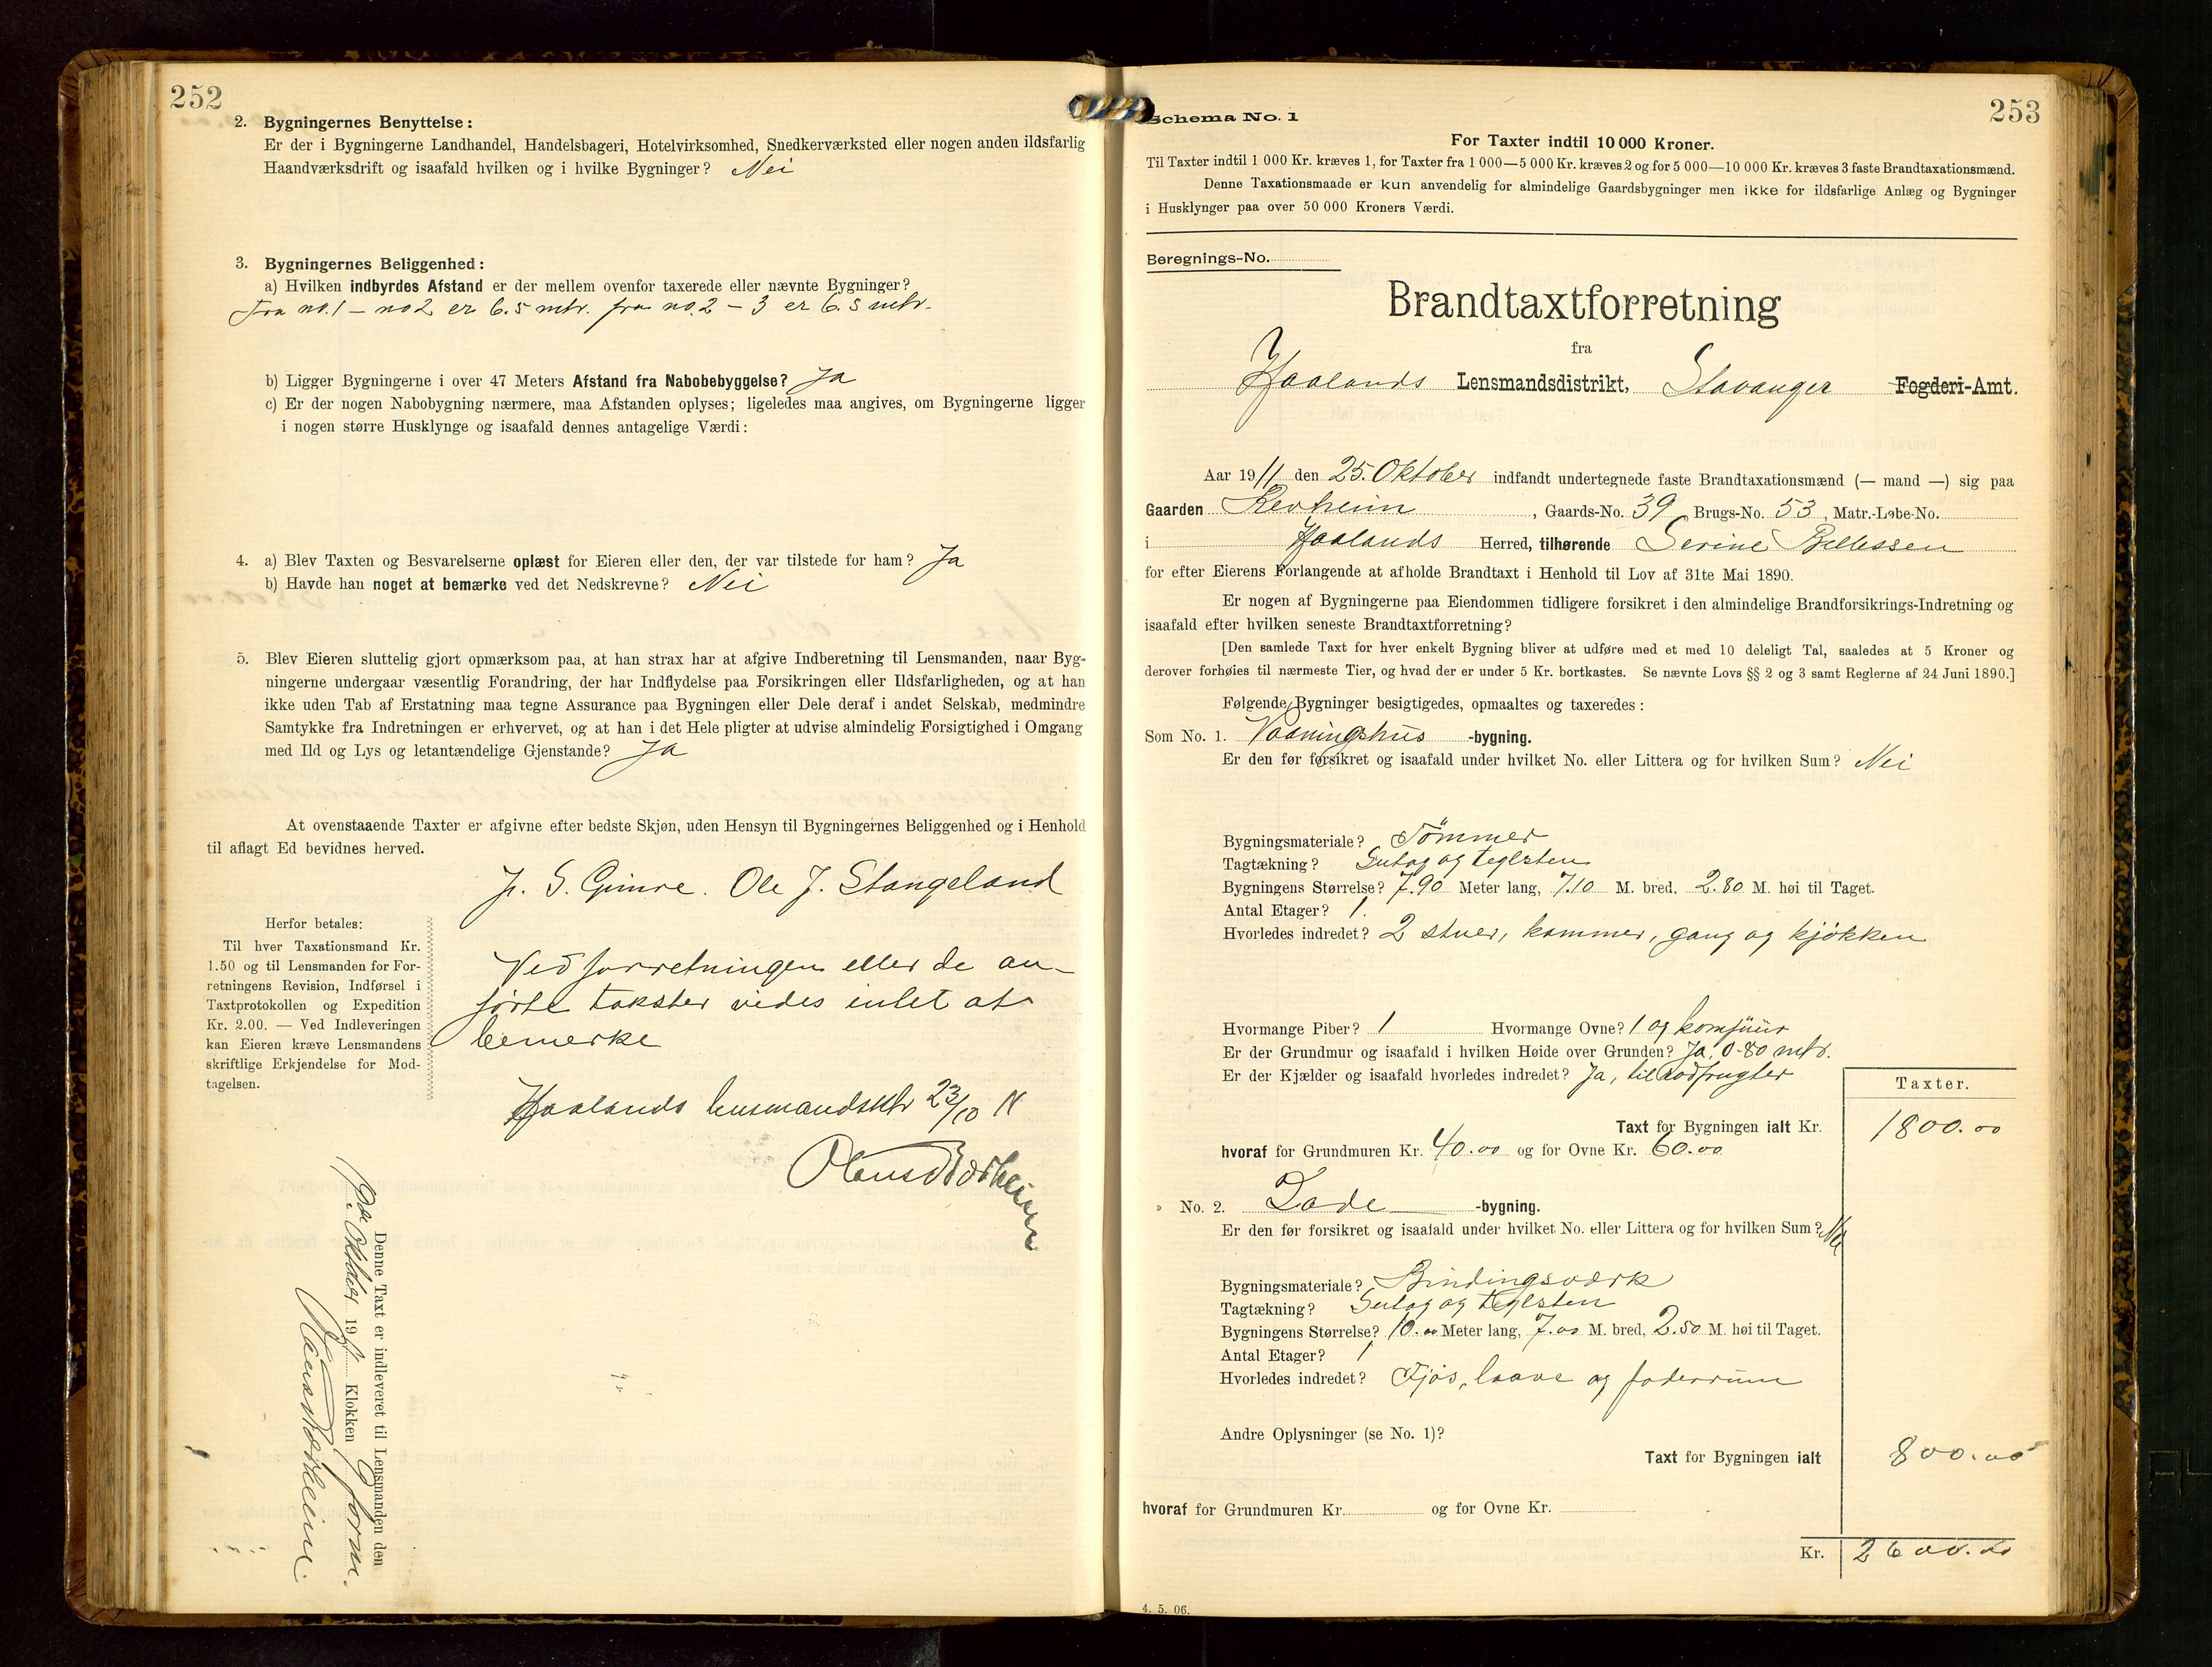 252
2. Bygningernes Benyttelse:
Er der i Bygningerne Landhandel, Handelsbageri, Hotelvirksomhed, Snedkerværksted eller nogen anden ildsfarlig
Haandværksdrift og isaafald hvilken og i hvilke Bygninger? Nei
3. Bygningernes Beliggenhed:
a) Hvilken indbyrdes Afstand er der mellem ovenfor taxerede eller nævnte Bygninger?
Fra no. 1 – no 2 er 6.5 mtr. fra no. 2 – 3 er 6.5 mtr.
b) Ligger Bygningerne i over 47 Meters Afstand fra Nabobebyggelse? Ja
c) Er der nogen Nabobygning nærmere, maa Afstanden oplyses; ligeledes maa angives, om Bygningerne ligger
i nogen større Husklynge og isaafald dennes antagelige Værdi:
4. a) Blev Taxten og Besvarelserne oplæst for Eieren eller den, der var tilstede for ham? Ja
b) Havde han noget at bemærke ved det Nedskrevne? Nei
5. Blev Eieren sluttelig gjort opmærksom paa, at han strax har at afgive Indberetning til Lensmanden, naar Byg-
ningerne undergaar væsentlig Forandring, der har Indflydelse paa Forsikringen eller Ildsfarligheden, og at han
ikke uden Tab af Erstatning maa tegne Assurance paa Bygningen eller Dele deraf i andet Selskab, medmindre
Samtykke fra Indretningen er erhvervet, og at han i det Hele pligter at udvise almindelig Forsigtighed i Omgang
med Ild og Lys og letantændelige Gjenstande? Ja
At ovenstaaende Taxter er afgivne efter bedste Skjøn, uden Hensyn til Bygningernes Beliggenhed og i Henhold
til aflagt Ed bevidnes herved.
J. S. Gimre. Ole J. Stangeland
Herfor betales:
Til hver Taxationsmand Kr.
1.50 og til Lensmanden for For-
retningens Revision, Indførsel i
Taxtprotokollen og Expedition
Kr. 2.00. — Ved Indleveringen
kan Eieren kræve Lensmandens
skriftlige Erkjendelse for Mod-
tagelsen.
Ved forretningen eller de an-
førte takster vides intet at
bemerke
Haalands lensmandsktr 23/10 11
Denne Taxt er indleveret til Lensmanden den
Oktober 19 11 Klokken 9 form.
253
Schema No. 1
For Taxter indtil 10 000 Kroner.
Til Taxter indtil 1 000 Kr. kræves 1, for Taxter fra 1 000—5 000 Kr. kræves 2 og for 5 000—10 000 Kr. kræves 3 faste Brandtaxationsmænd.
Denne Taxationsmaade er kun anvendelig for almindelige Gaardsbygninger men ikke for ildsfarlige Anlæg og Bygninger
i Husklynger paa over 50 000 Kroners Værdi.
Beregnings-No.
Brandtaxtforretning
fra
Haalands Lensmandsdistrikt, Stavanger Fogderi-Amt.
Aar 1911 den 25. Oktober indfandt undertegnede faste Brandtaxationsmænd (— mand —) sig paa
Gaarden Revheim, Gaards-No. 39 Brugs-No. 53, Matr.-Løbe-No.
i Haalands Herred, tilhørende Serine
for efter Eierens Forlangende at afholde Brandtaxt i Henhold til Lov af 31te Mai 1890.
Er nogen af Bygningerne paa Eiendommen tidligere forsikret i den almindelige Brandforsikrings-Indretning og
isaafald efter hvilken seneste Brandtaxtforretning?
[Den samlede Taxt for hver enkelt Bygning bliver at udføre med et med 10 deleligt Tal, saaledes at 5 Kroner og
derover forhøies til nærmeste Tier, og hvad der er under 5 Kr. bortkastes. Se nævnte Lovs §§ 2 og 3 samt Reglerne af 24 Juni 1890.]
Følgende Bygninger besigtigedes, opmaaltes og taxeredes:
Som No. 1. Vaaningshus -bygning.
Er den før forsikret og isaafald under hvilket No. eller Littera og for hvilken Sum? Nei
Bygningsmateriale? Tømmer
Tagtækning? Sutag og teglsten
Bygningens Størrelse? 7.90 Meter lang, 7.10 M. bred, 2.80 M. høi til Taget.
Antal Etager? 1.
Hvorledes indredet? 2 stuer, kammer, gang og kjøkken
Hvormange Piber? 1 Hvormange Ovne? 1 og komfuur
Er der Grundmur og isaafald i hvilken Høide over Grunden? Ja, 0-80 mtr.
Er der Kjælder og isaafald hvorledes indredet? Ja, til rodfrugter
Taxter.
Taxt for Bygningen ialt Kr. 1800.00
hvoraf for Grundmuren Kr. 40.00 og for Ovne Kr. 60.00
» No. 2. Lade -bygning.
Er den før forsikret og isaafald under hvilket No. eller Littera og for hvilken Sum? Nei
Bygningsmateriale? Bindingsværk
Tagtækning? Sutag og teglsten
Bygningens Størrelse? 10.00 Meter lang, 7.00 M. bred, 2.50 M. høi til Taget.
Antal Etager? 1
Hvorledes indredet? Fjøs, laave og foderrum
Andre Oplysninger (se No. 1)?
Taxt for Bygningen ialt 800.00
hvoraf for Grundmuren Kr. og for Ovne Kr.
Kr. 2600.00
4. 5. 06.